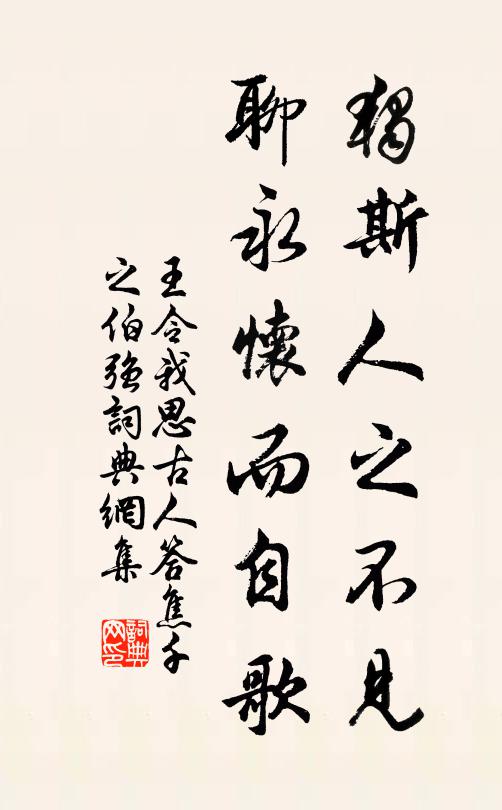 獨斯人之不見
聊永懷而自歌
王令我思古人答焦千
之伯強詞典網集
詞典
网印